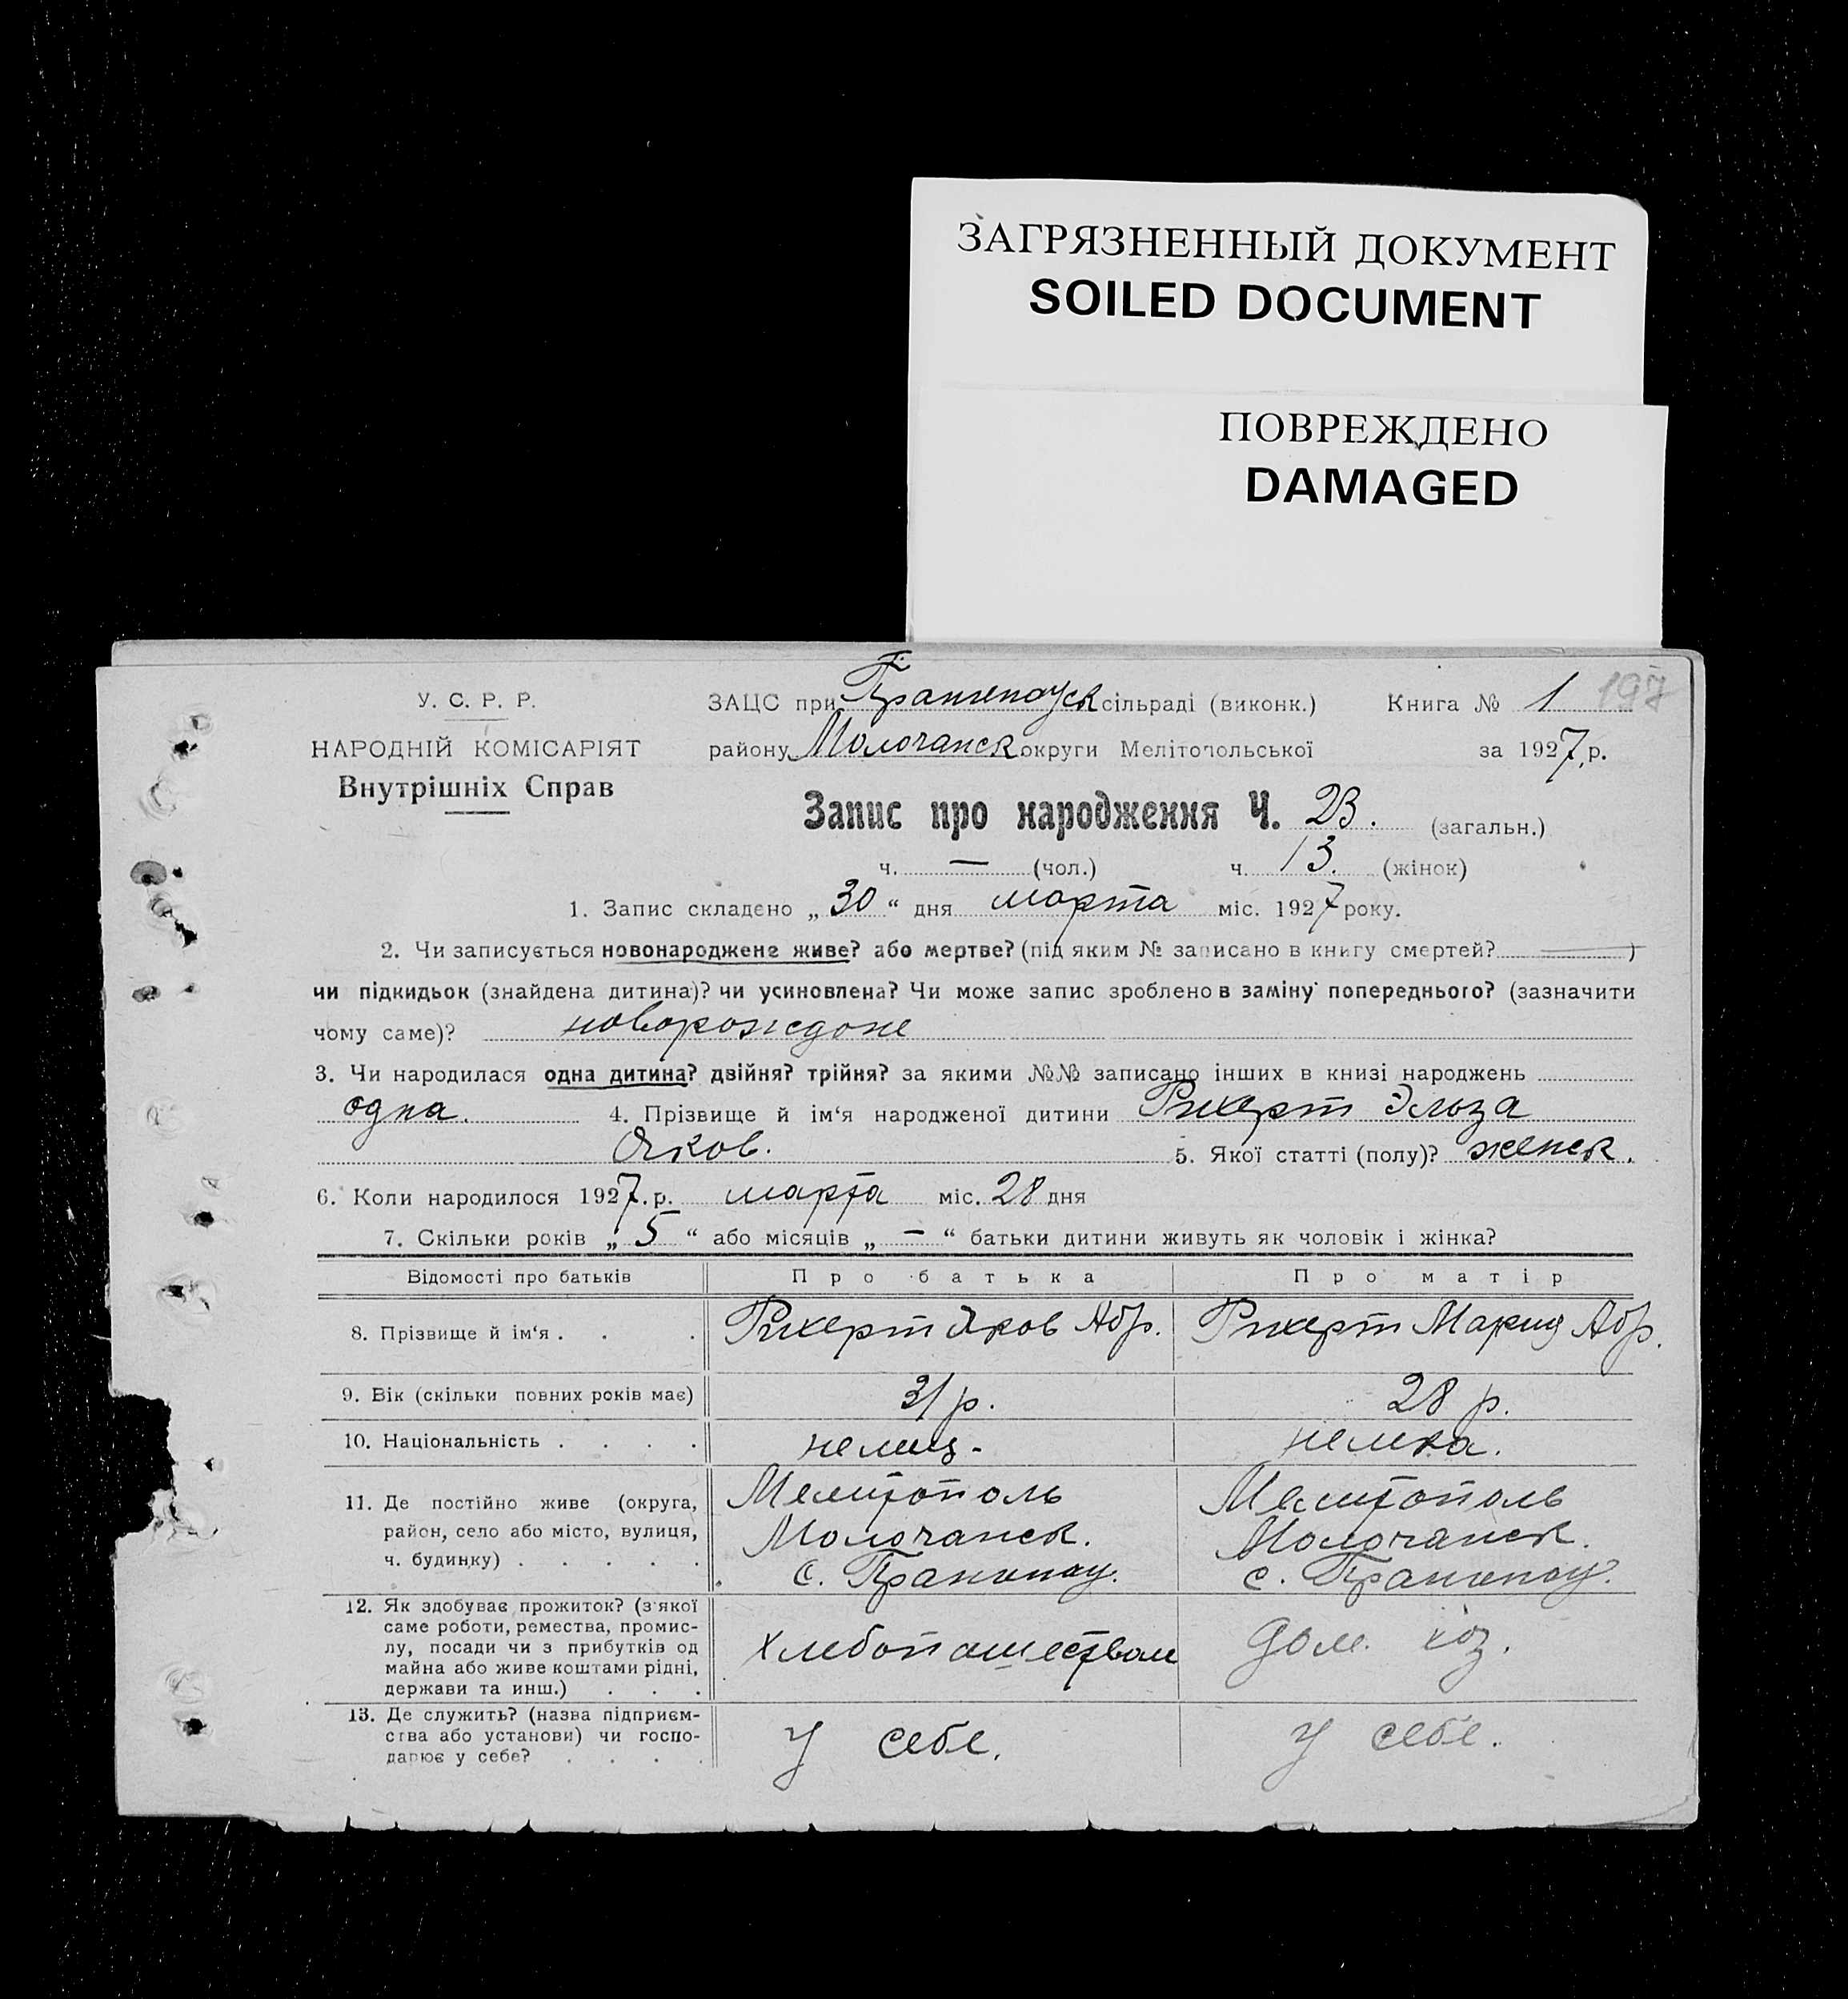 ЗАГРЯЗНЕННЫЙ ДОКУМЕНТ
SOILED DOCUMENT
ПОВРЕЖДЕНО
DAMAGED
У. С. Р. Р.
НАРОДНІЙ КОМІСАРІЯТ
Внутрішніх Справ
ЗАЦС при сільраді (виконк.) Книга № 1 197
району Молочанск округи Мелітопольської за 1927 р.
Запис про народження Ч. 23. (загальн.)
ч. — (чол.) ч. 13. (жінок)
1. Запис складено „30“ дня марта міс. 1927 року.
2. Чи записується новонароджене живе? або мертве? (під яким № записано в книгу смертей? — )
чи підкидьок (знайдена дитина)? чи усиновлена? Чи може запис зроблено в заміну попереднього? (зазначити
чому саме)? новорождоне
3. Чи народилася одна дитина? двійня? трійня? за якими №№ записано інших в книзі народжень
одна. 4. Прізвище й ім‘я народженої дитини Рихерт Эльза
Яков. 5. Якої статті (полу)? женск.
6. Коли народилося 1927 р. марта міс. 28 дня
7. Скільки років „5“ або місяців „—“ батьки дитини живуть як чоловік і жінка?
Відомості про батьків Про батька Про матір
8. Прізвище й ім‘я . . . Рихерт Яков Абр. Рихерт Мария Абр.
9. Вік (скільки повних років має) 31 р. 28 р.
10. Національність . . . . немец. немка.
11. Де постійно живе (округа, Мелитополь Мелитополь
район, село або місто, вулиця, Молочанск. Молочанск.
ч. будинку) . . . . . с. с.
12. Як здобуває прожиток? (з якої
саме роботи, ремества, промис-
лу, посади чи з прибутків од хлебопашеством дом. хоз.
майна або живе коштами рідні,
держави та инш.) . . .
13. Де служить? (назва підприєм-
ства або установи) чи госпо- У себе. У себе.
дарює у себе? . . . .